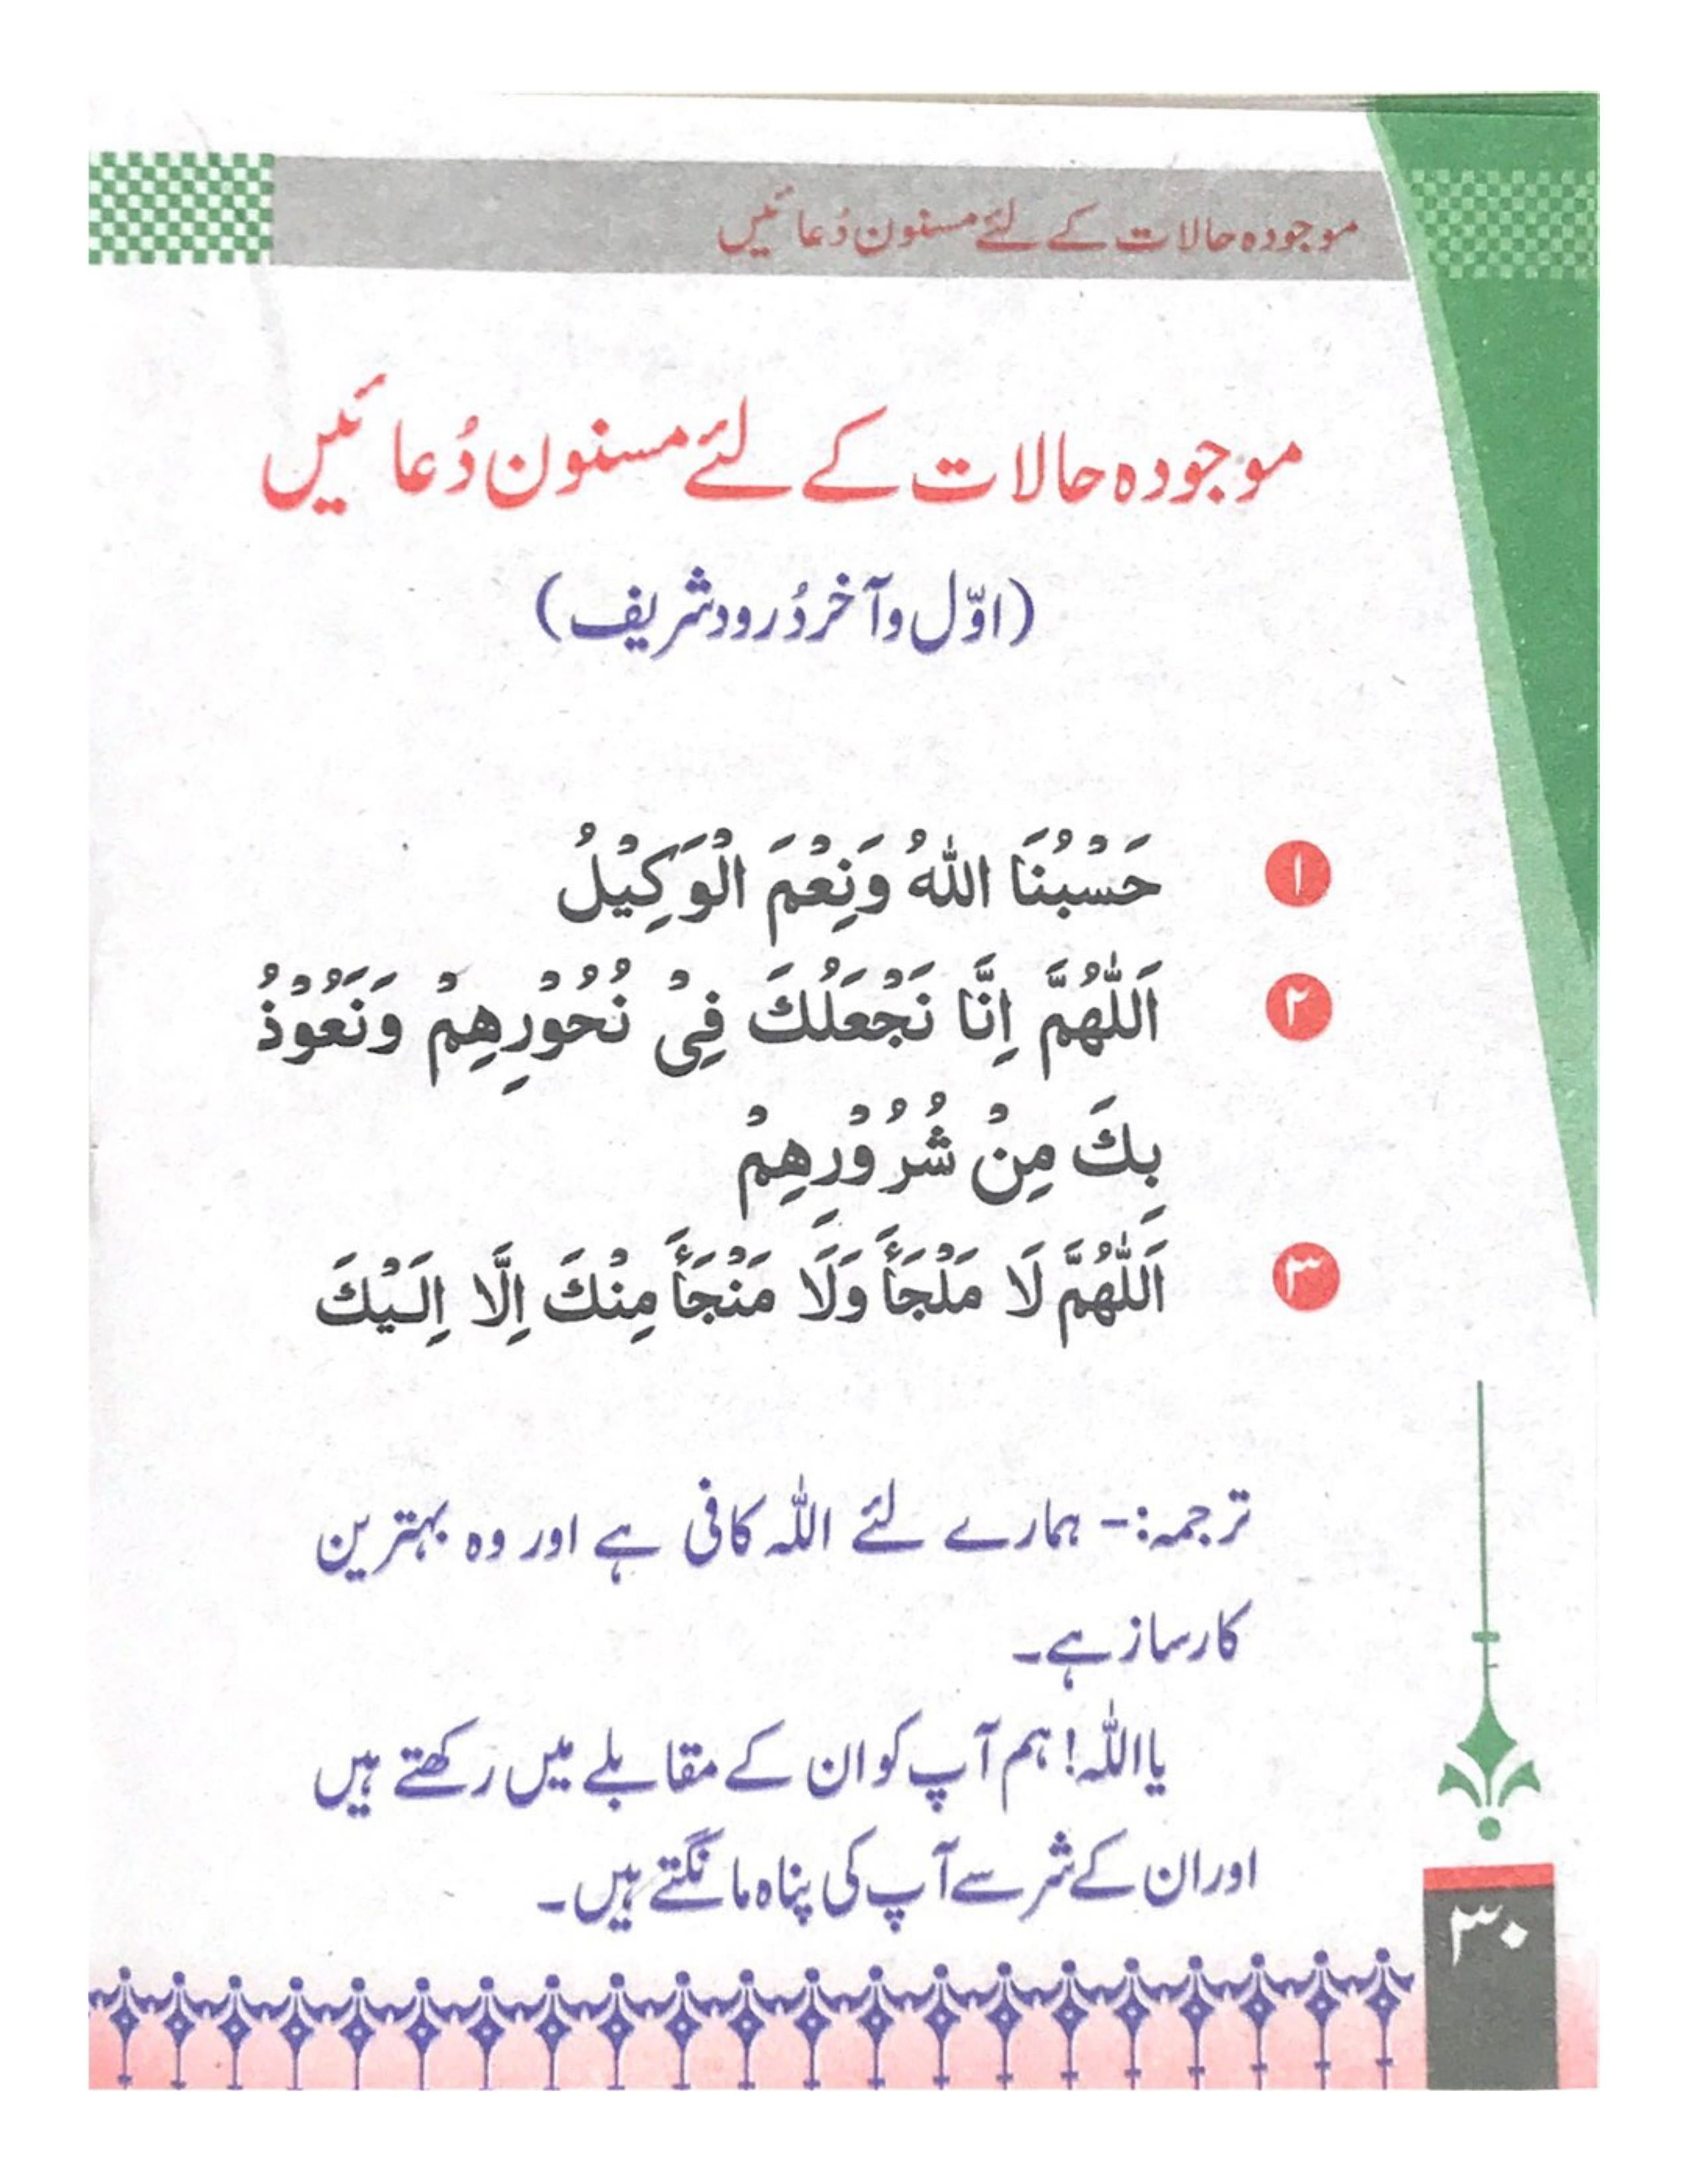 موجودہ حالات کے لئے مسنون دُعائیں
موجودہ حالات کے لئے مسنون دُعائیں
(اوّل و آخر دُرود شریف)
۱ حَسْبُنَا اللّٰهُ وَنِعْمَ الْوَكِيْلُ
۲ اَللّٰهُمَّ اِنَّا نَجْعَلُكَ فِىْ نُحُوْرِهِمْ وَنَعُوْذُ
بِكَ مِنْ شُرُوْرِهِمْ
۳ اَللّٰهُمَّ لَا مَلْجَأَ وَلَا مَنْجَأَ مِنْكَ اِلَّا اِلَيْكَ
ترجمہ:- ہمارے لئے اللہ کافی ہے اور وہ بہترین
کارساز ہے۔
یا اللہ! ہم آپ کو ان کے مقابلے میں رکھتے ہیں
اور ان کے شر سے آپ کی پناہ مانگتے ہیں۔
۳۰